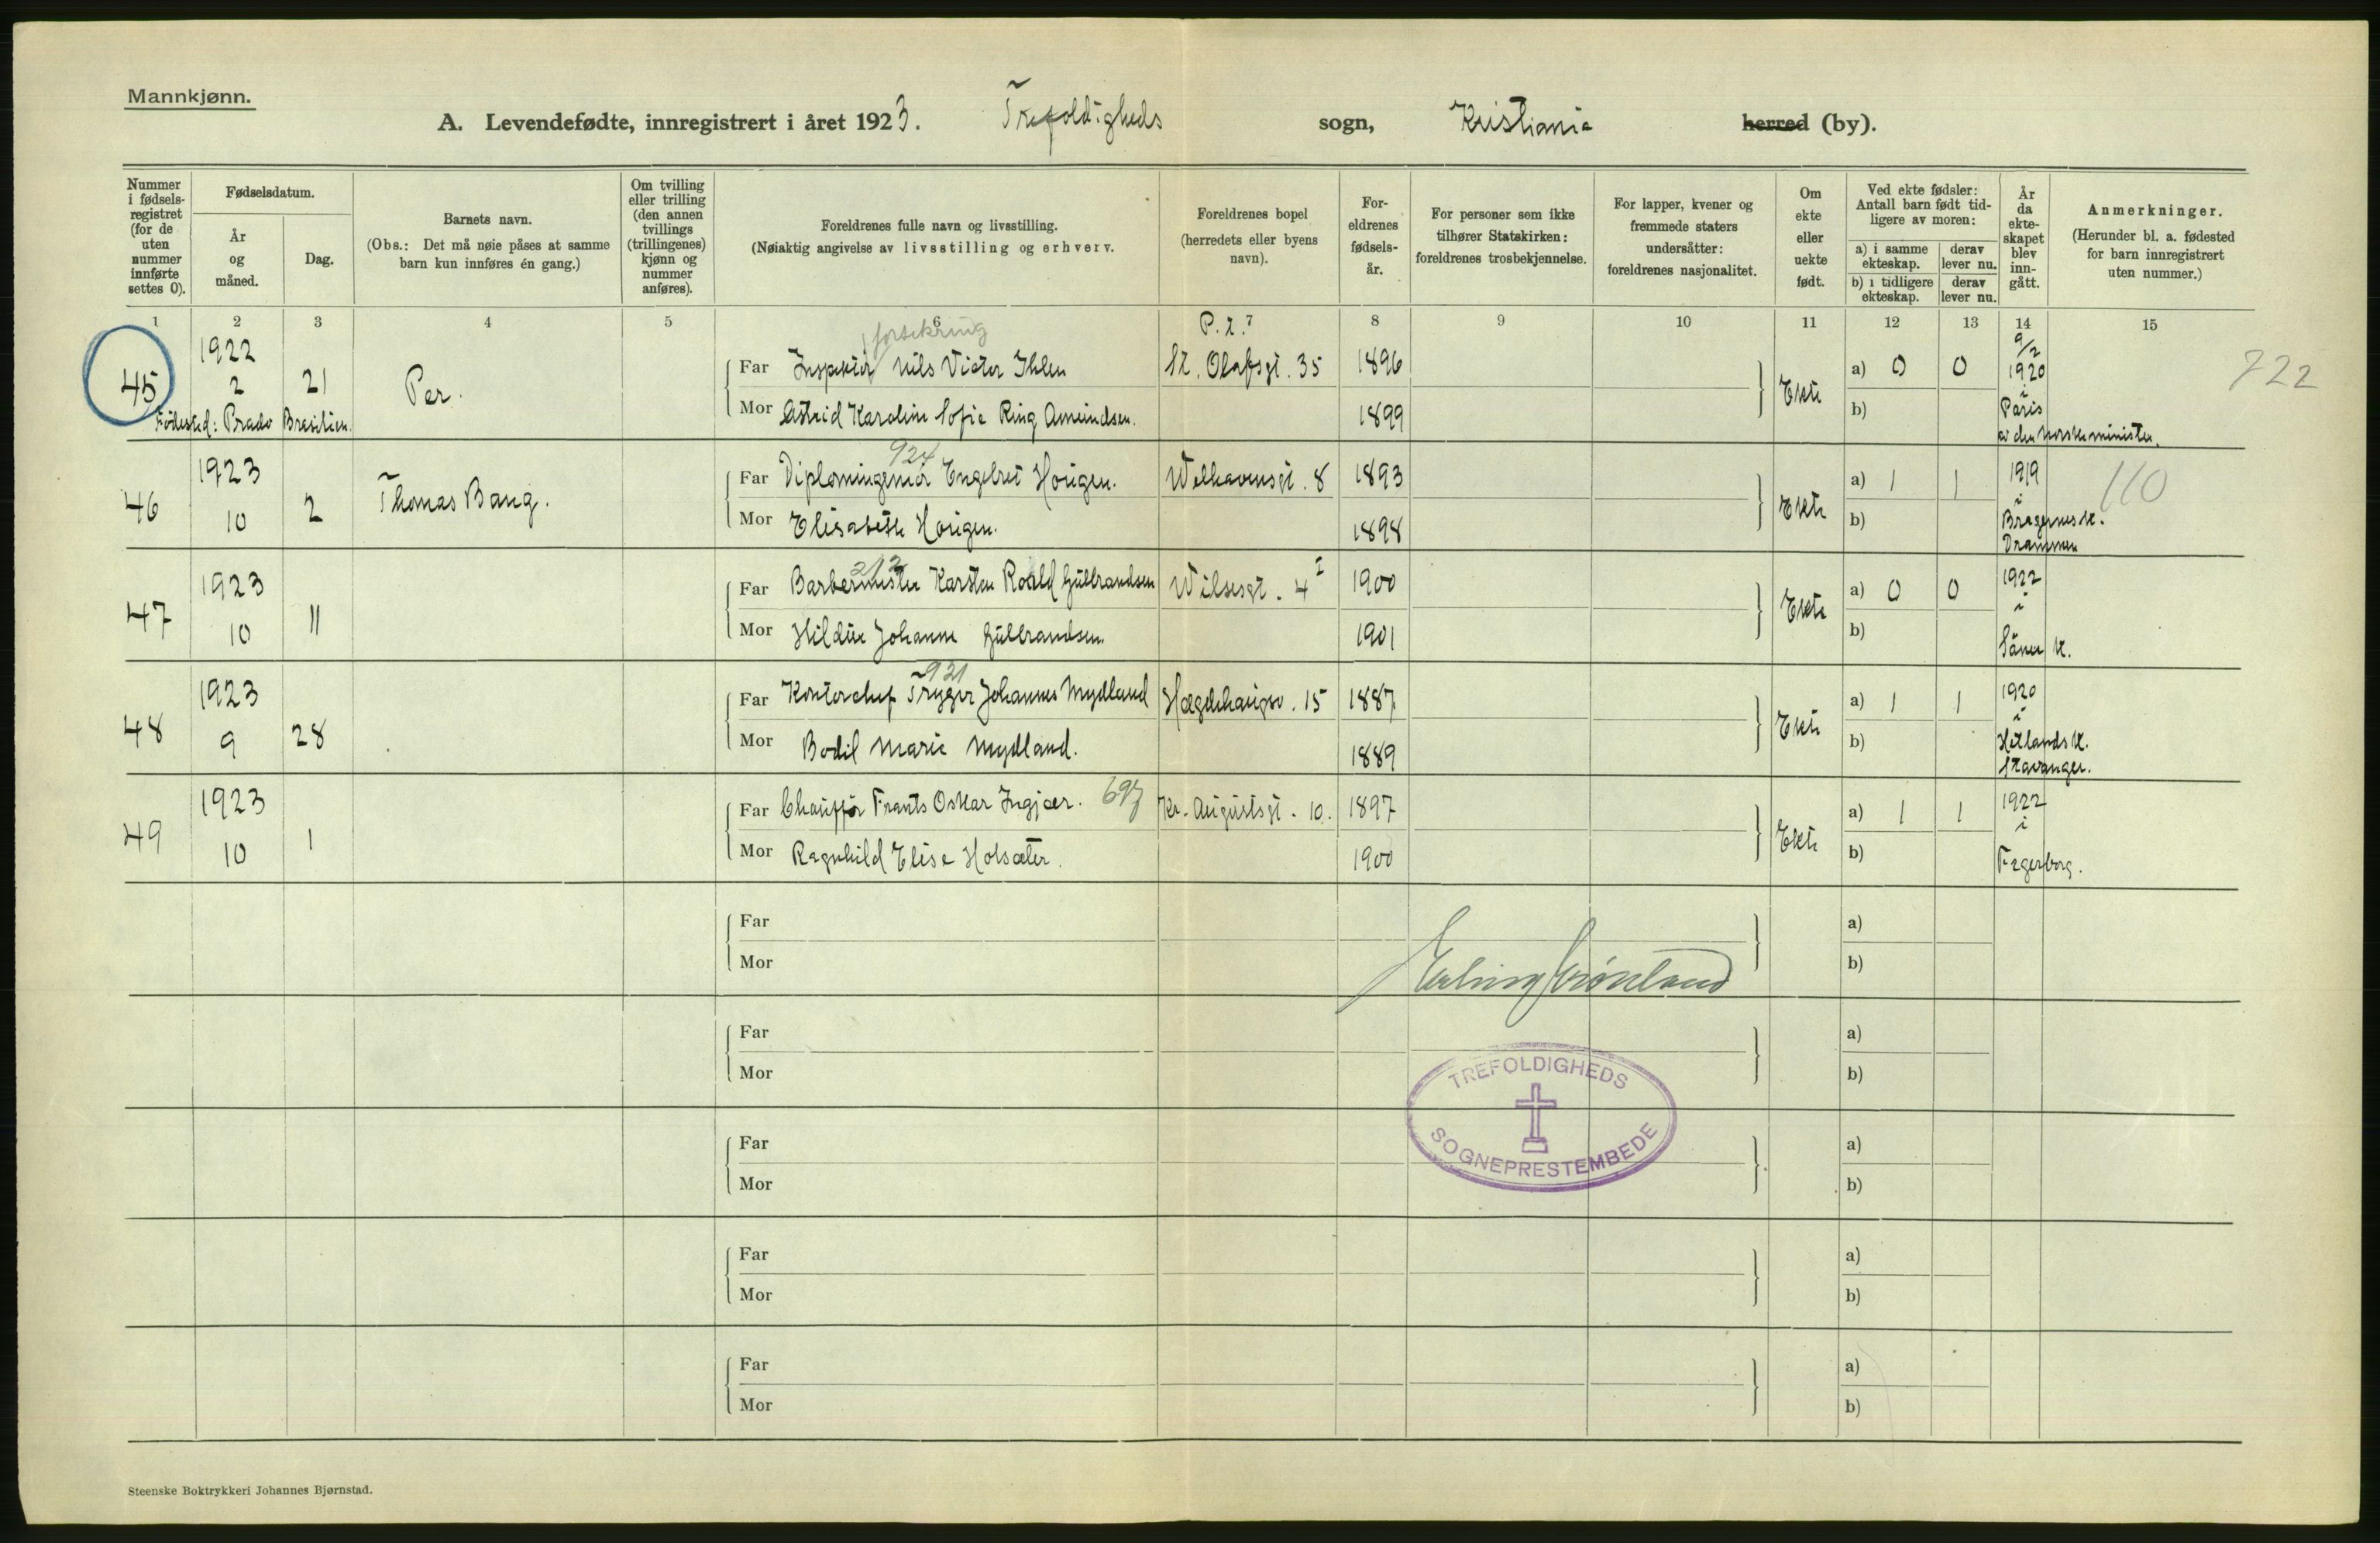 Mannkjønn.
A. Levendefødte, innregistrert i året 1923. Trefoldigheds sogn, Kristiania herred (by).
Nummer i fødsels-registret (for de uten nummer innførte settes 0).
Fødselsdatum.
År og måned.
Dag.
Barnets navn.
(Obs.: Det må nøie påses at samme barn kun innføres én gang.)
Om tvilling eller trilling (den annen tvillings (trillingenes) kjønn og nummer anføres).
Foreldrenes fulle navn og livsstilling.
(Nøiaktig angivelse av livsstilling og erhverv.
Foreldrenes bopel (herredets eller byens navn).
For-eldrenes fødsels-år.
For personer som ikke tilhører Statskirken: foreldrenes trosbekjennelse.
For lapper, kvener og fremmede staters undersåtter: foreldrenes nasjonalitet.
Om ekte eller uekte født.
Ved ekte fødsler: Antall barn født tid-ligere av moren:
a) i samme ekteskap.
derav lever nu.
b) i tidligere ekteskap.
derav lever nu.
År da ekte-skapet blev inn-gått.
Anmerkninger.
(Herunder bl. a. fødested for barn innregistrert uten nummer.)
1 2 3 4 5 6 7 8 9 10 11 12 13 14 15
forsikring
P. t.
45 1922 2 21 Per. Far Inspektør Nils Victor Ihlen St. Olafsgt. 35 1896 Ekte a) 0 0 9/2 1920 i Paris 722
Mor Astrid Karoline Sofie Ring Amundsen. 1899 b) av den norske minister.
Fødested: Prado Brasilien.
924
46 1923 10 2 Thomas Bang. Far Diplomingeniør Engebret Horigen. Welhavensgt. 8 1893 Ekte a) 1 1 1919 i Bragernes k. Drammen 110
Mor Elisabeth Horigen. 1898 b)
212
47 1923 10 11 Far Barbermester Karsten Roald Gulbrandsen Wilsesgt. 4 I 1900 Ekte a) 0 0 1922 i Såner k.
Mor Hildur Johanne Gulbrandsen. 1901 b)
921
48 1923 9 28 Far Kontorchef Trygve Johannes Mydland Hægdehaugsv. 15 1887 Ekte a) 1 1 1920 i Hetlands k. Stavanger.
Mor Bodil Marie Mydland. 1889 b)
49 1923 10 1 Far Chauffør Frants Oskar Ingjær. 697 Kr. Augustsgt. 10. 1897 Ekte a) 1 1 1922 i Fagerborg.
Mor Ragnhild Elise Holsæter. 1900 b)
Far a)
Mor b)
Erling Grönland
Far a)
Mor b)
TREFOLDIGHEDS
SOGNEPRESTEMBEDE
Far a)
Mor b)
Far a)
Mor b)
Far a)
Mor b)
Steenske Boktrykkeri Johannes Bjørnstad.